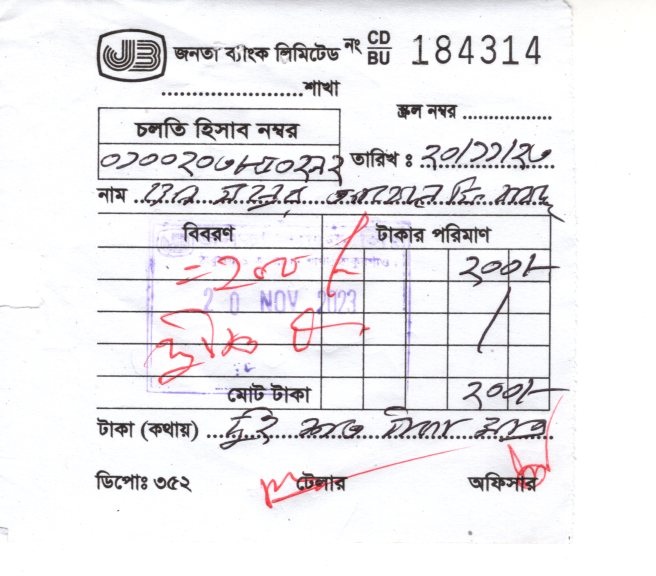 JB জনতা ব্যাংক লিমিটেড নং CD/BU 184314
....................শাখা
স্ক্রল নম্বর ..................
চলতি হিসাব নম্বর
তারিখ : ২০/১১/২৩
নাম
বিবরণ টাকার পরিমাণ
= ২০০/- ২০০/-
20 NOV 2023
মোট টাকা ২০০/-
টাকা (কথায়) দুই শত টাকা মাত্র
ডিপোঃ ৩৫২ টেলার অফিসার